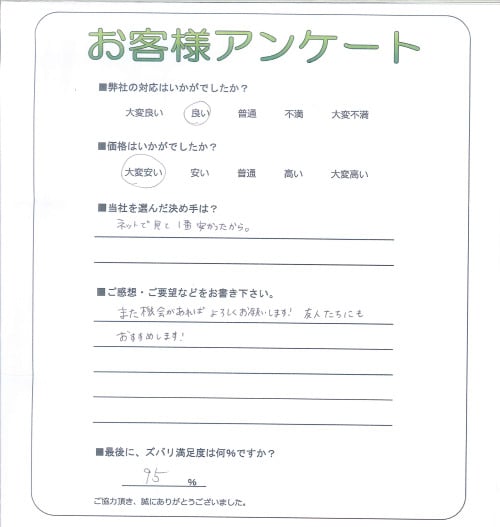 お客様アンケート
■弊社の対応はいかがでしたか？
大変良い 良い 普通 不満 大変不満
■価格はいかがでしたか？
大変安い 安い 普通 高い 大変高い
■当社を選んだ決め手は？
ネットで見て1番安かったから。
■ご感想・ご要望などをお書き下さい。
また機会があればよろしくお願いします! 友人たちにも
おすすめします!
■最後に、ズバリ満足度は何%ですか？
95 %
ご協力頂き、誠にありがとうございました。